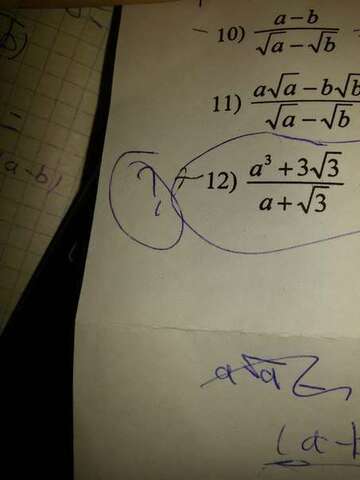 10) \frac{a-b}{\sqrt{a}-\sqrt{b}}
11) \frac{a\sqrt{a}-b\sqrt{b}}{\sqrt{a}-\sqrt{b}}
(a-b)
? 12) \frac{a^3+3\sqrt{3}}{a+\sqrt{3}}
(a-b